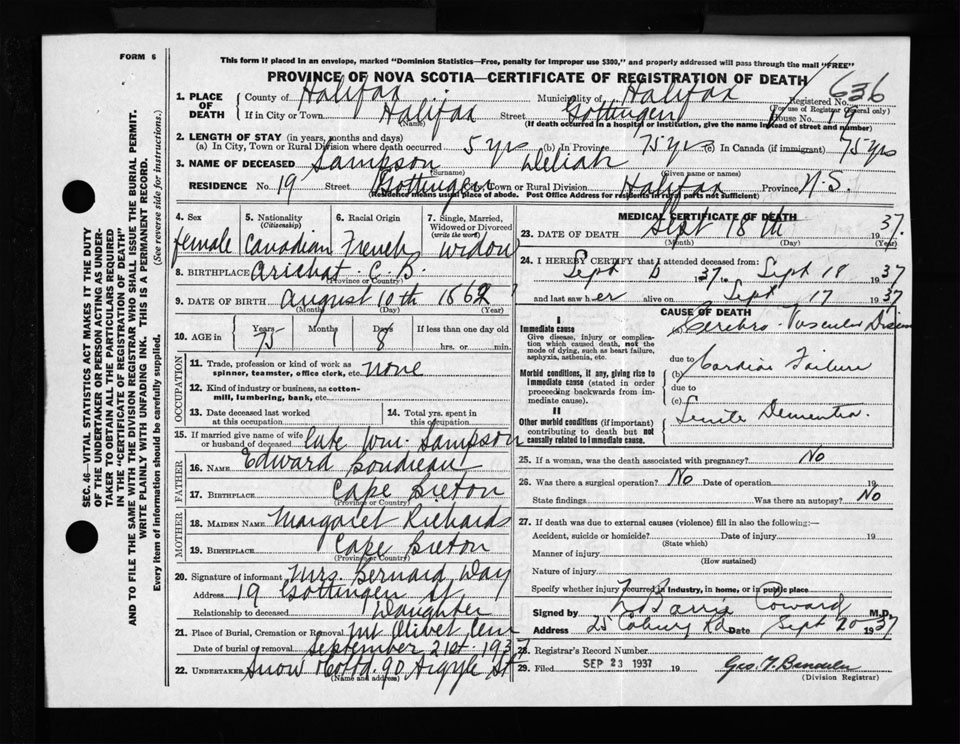 FORM 6
This form if placed in an envelope, marked "Dominion Statistics—Free, penalty for improper use $300," and properly addressed will pass through the mail "FREE"
PROVINCE OF NOVA SCOTIA—CERTIFICATE OF REGISTRATION OF DEATH
636
1. PLACE OF DEATH County of Halifax Municipality of Halifax Registered No.
(For use of Registrar General only)
If in City or Town Halifax Street Gottingen House No. 19
(Name) (If death occurred in a hospital or institution, give the name instead of street and number)
2. LENGTH OF STAY (in years, months and days)
(a) In City, Town or Rural Division where death occurred 5 yrs (b) In Province 75 yrs (c) In Canada (if immigrant) 75 yrs
3. NAME OF DECEASED Sampson Deliah
(Surname) (Given name or names)
RESIDENCE No. 19 Street Gottingen City, Town or Rural Division Halifax Province N.S.
(Residence means usual place of abode. Post Office Address for residents in rural parts not sufficient)
4. Sex female
5. Nationality (Citizenship) Canadian
6. Racial Origin French
7. Single, Married, Widowed or Divorced (write the word) widow
8. BIRTHPLACE Arichat C.B.
(Province or Country)
9. DATE OF BIRTH August 10th 1862
(Month) (Day) (Year)
10. AGE in Years 75 Months 1 Days 8 If less than one day old
hrs. or min.
OCCUPATION
11. Trade, profession or kind of work as spinner, teamster, office clerk, etc. none
12. Kind of industry or business, as cotton-mill, lumbering, bank, etc.
13. Date deceased last worked at this occupation
14. Total yrs. spent in this occupation
15. If married give name of wife or husband of deceased late Wm. Sampson
FATHER
16. NAME Edward Boudreau
17. BIRTHPLACE Cape Breton
(Province or Country)
MOTHER
18. MAIDEN NAME Margaret Richards
19. BIRTHPLACE Cape Breton
(Province or Country)
20. Signature of informant Mrs. Bernard Day
Address 19 Gottingen St
Relationship to deceased Daughter
21. Place of Burial, Cremation or Removal Mt Olivet Cem
Date of burial or removal September 21st 1937
22. UNDERTAKER Snow & Co Ltd. 90 Argyle St
(Name and address)
MEDICAL CERTIFICATE OF DEATH
23. DATE OF DEATH Sept 18th 1937.
(Month) (Day) (Year)
24. I HEREBY CERTIFY that I attended deceased from:
Sept 1937 to Sept 18 1937
and last saw her alive on Sept 17 1937
CAUSE OF DEATH
I
Immediate cause
Give disease, injury or complication which caused death, not the mode of dying, such as heart failure, asphyxia, asthenia, etc.
Cerebro-Vascular Disease
due to
Morbid conditions, if any, giving rise to immediate cause (stated in order proceeding backwards from immediate cause).
(b) Cardiac Failure
due to
(c)
II
Other morbid conditions (if important) contributing to death but not causally related to immediate cause.
Senile Dementia.
25. If a woman, was the death associated with pregnancy? No
26. Was there a surgical operation? No Date of operation 19
State findings Was there an autopsy? No
27. If death was due to external causes (violence) fill in also the following:—
Accident, suicide or homicide? Date of injury 19
(State which)
Manner of injury
(How sustained)
Nature of injury
Specify whether injury occurred in industry, in home, or in public place
Signed by N Barrie Coward M.D.
Address 25 Coburg Rd Date Sept 20 1937
28. Registrar's Record Number
29. Filed SEP 23 1937 19
(Division Registrar)
SEC. 46—VITAL STATISTICS ACT MAKES IT THE DUTY
OF THE UNDERTAKER OR PERSON ACTING AS UNDERTAKER TO OBTAIN ALL THE PARTICULARS REQUIRED
IN THE "CERTIFICATE OF REGISTRATION OF DEATH"
AND TO FILE THE SAME WITH THE DIVISION REGISTRAR WHO SHALL ISSUE THE BURIAL PERMIT.
WRITE PLAINLY WITH UNFADING INK. THIS IS A PERMANENT RECORD.
Every item of information should be carefully supplied. (See reverse side for instructions.)